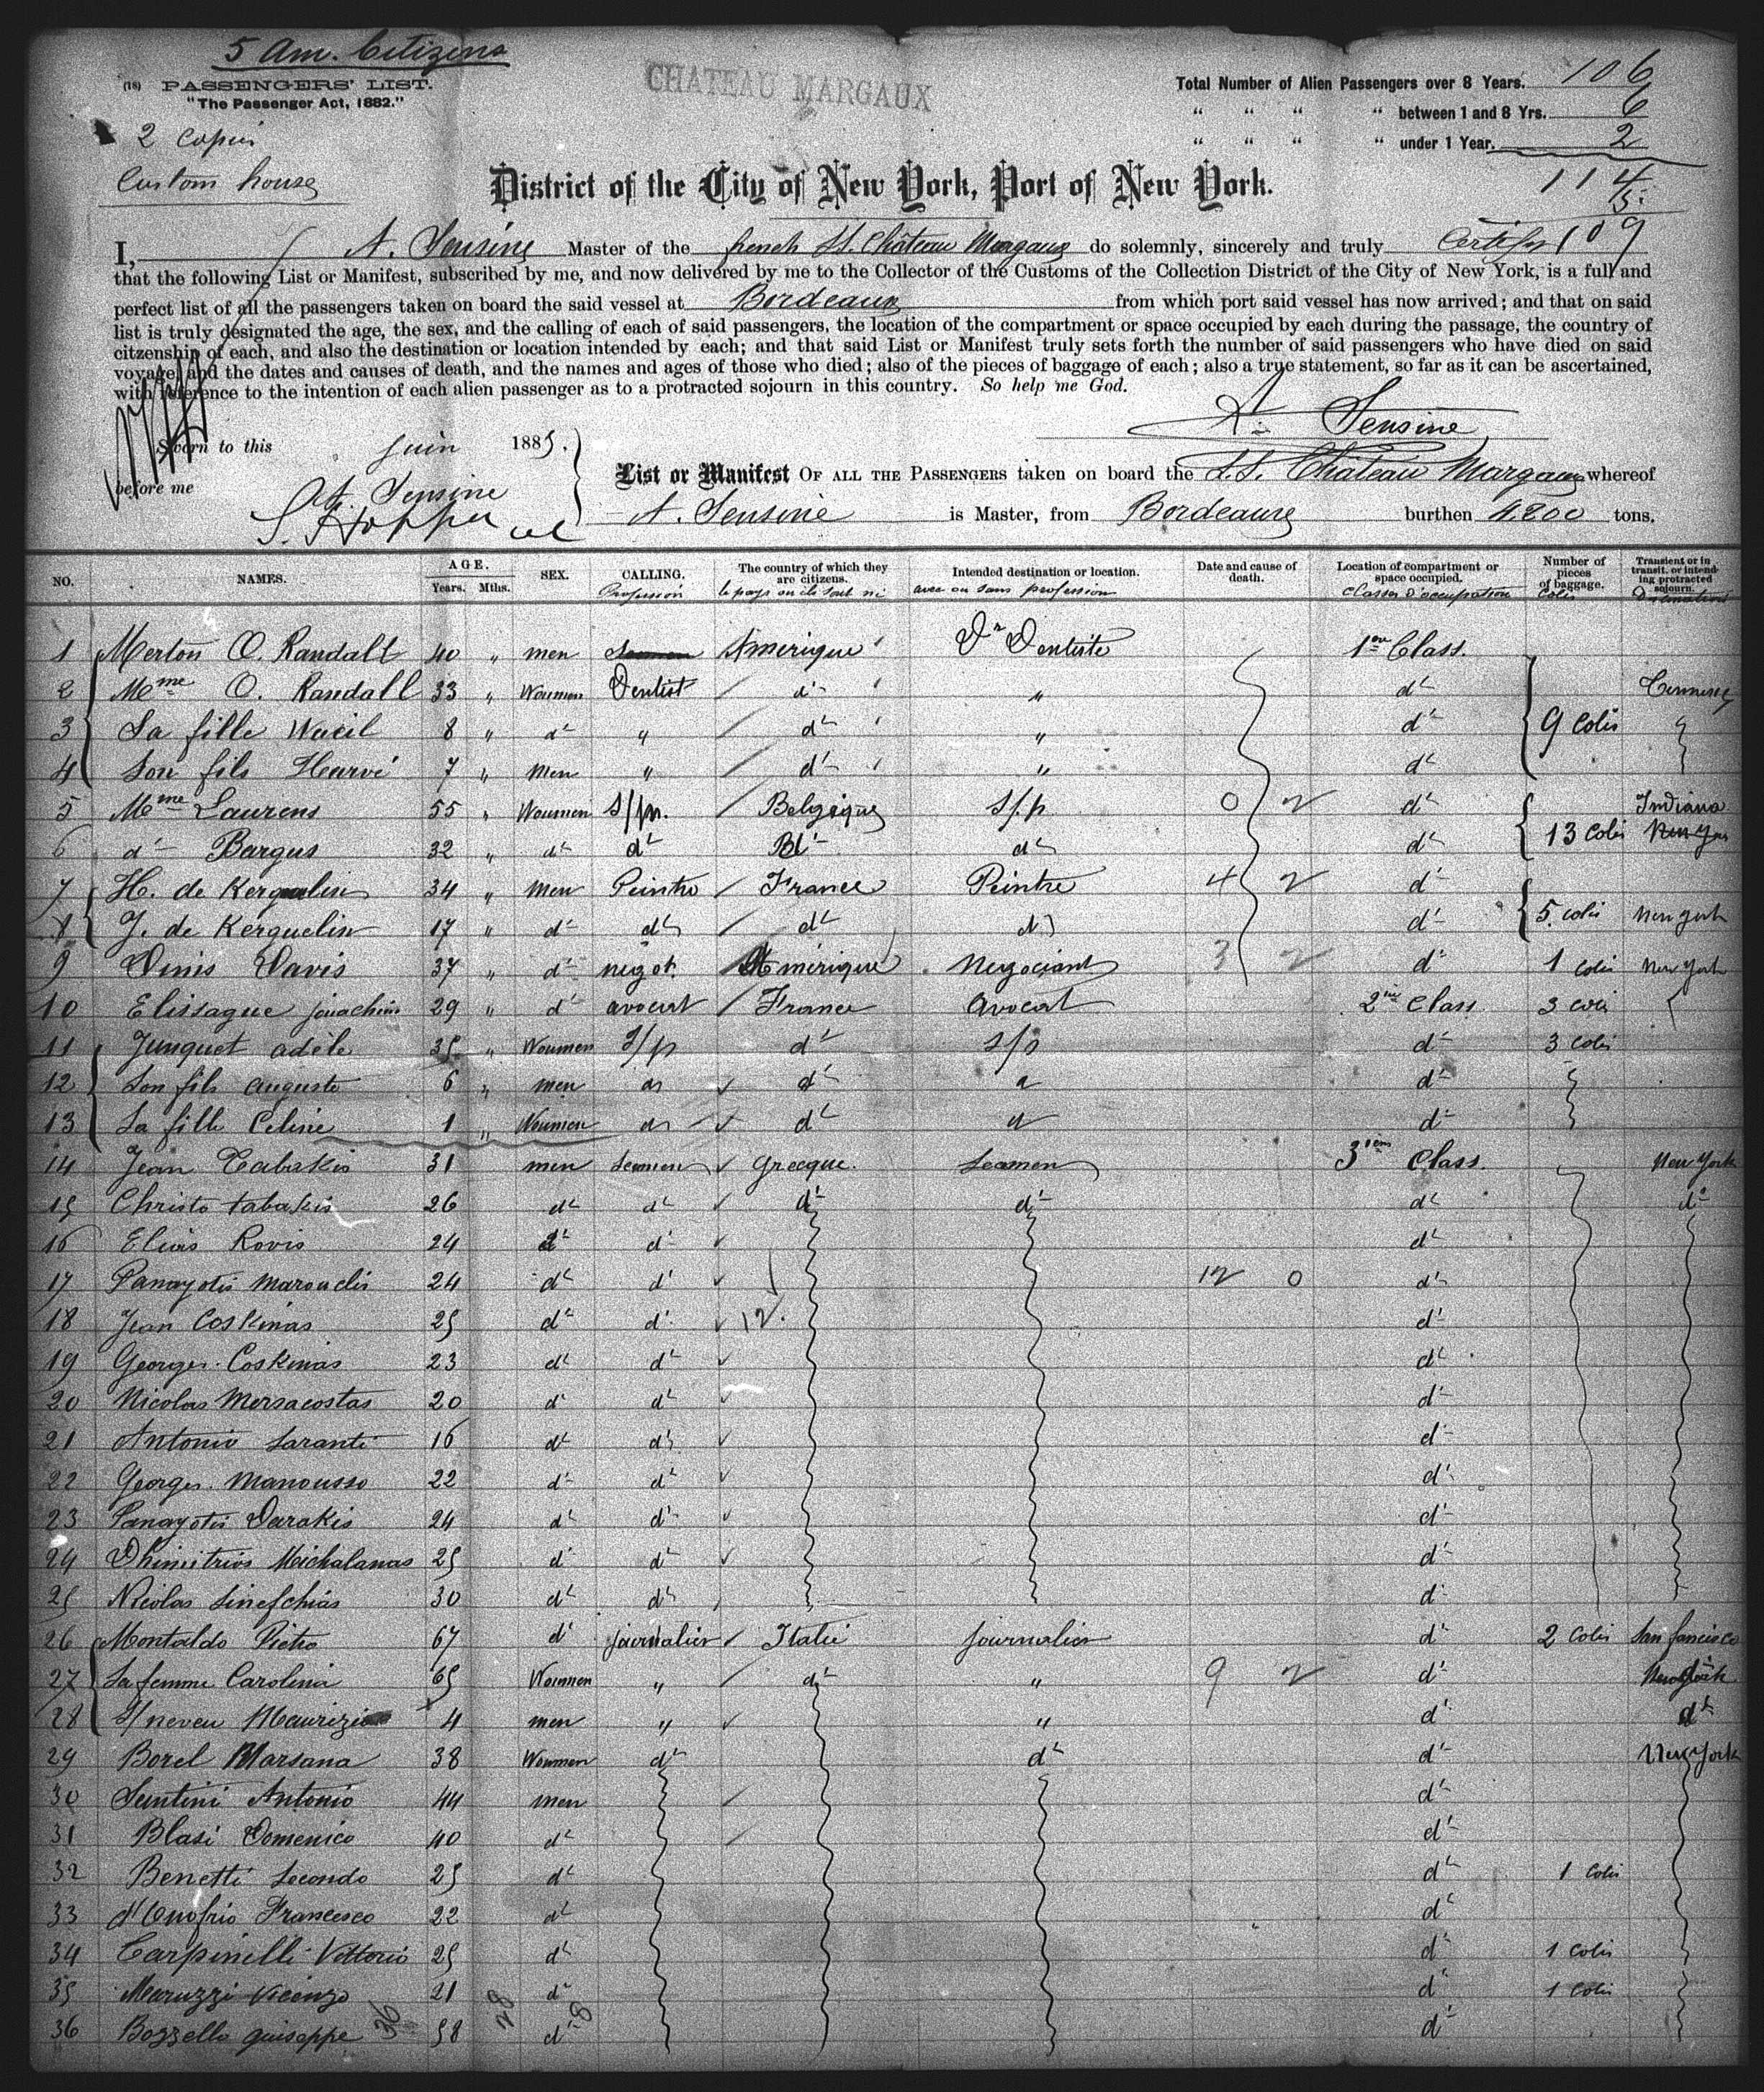 5 Am. Citizens
(18) PASSENGERS' LIST.
"The Passenger Act, 1882."
2 Copies
Custom house
CHATEAU MARGAUX
Total Number of Alien Passengers over 8 Years. 106
" " " " between 1 and 8 Yrs. 6
" " " " under 1 Year. 2
114
5
109
District of the City of New York, Port of New York.
I, A. Sensine Master of the french St. Château Margaux do solemnly, sincerely and truly Certify
that the following List or Manifest, subscribed by me, and now delivered by me to the Collector of the Customs of the Collection District of the City of New York, is a full and
perfect list of all the passengers taken on board the said vessel at Bordeaux from which port said vessel has now arrived; and that on said
list is truly designated the age, the sex, and the calling of each of said passengers, the location of the compartment or space occupied by each during the passage, the country of
citzenship of each, and also the destination or location intended by each; and that said List or Manifest truly sets forth the number of said passengers who have died on said
voyage, and the dates and causes of death, and the names and ages of those who died; also of the pieces of baggage of each; also a true statement, so far as it can be ascertained,
with reference to the intention of each alien passenger as to a protracted sojourn in this country. So help me God.
A. Sensine
Sworn to this juin 1885.
before me At. Sensine
List or Manifest OF ALL THE PASSENGERS taken on board the S.S. Chateau Margaux whereof
A. Sensine is Master, from Bordeaux burthen 4.200 tons.
NO. NAMES. AGE. Years. Mths. SEX. CALLING. Profession The country of which they are citizens. le pays ou ils sont né Intended destination or location. avec ou sans profession Date and cause of death. Location of compartment or space occupied. Classes d'occupation Number of pieces of baggage. Colis Transient or in transit, or intending protracted sojourn.
1 Merton O. Randall 40 " men Amerique Dr Dentiste 1ere Class.
2 Mme O. Randall 33 " Woumen Dentist do " do
3 Sa fille 8 " do " do " do 9 Colis
4 Son fils Hervé 7 " Men " do " do
5 Mme Laurens 55 " Woumen S/p. Belgique S/.p 0 2 do Indiana
6 do Bargus 32 " do do do do do 13 Colis New York
7 H. de Kerguelin 34 " Men Peintre France Peintre 4 2 do
8 J. de Kerguelin 17 " do do do do do 5 colis New york
9 Dinis Davis 37 " do negot. Amérique Negociant 3 2 do 1 Colis New York
10 Elissague joachim 29 " do avocat France Avocat 2me Class 3 colis
11 Junquet adèle 35 " Woumen S/p do S/p do 3 Colis
12 Son fils auguste 6 " men do do do do
13 Sa fille Celine 1 " Woumen do do do do
14 Jean Tabakis 31 men Seamen Grecque. Seamen 3eme Class New York
15 Christo tabakis 26 do do do do do do
16 Elias Rovis 24 do do do
17 Panayotis Marouclis 24 do do 12 0 do
18 Jean Coskinas 25 do do 12. do
19 Georges Coskinas 23 do do do
20 Nicolas Mersacostas 20 do do do
21 Antonio Saranti 16 do do do
22 Georges Manousso 22 do do do
23 Panayotis Darakis 24 do do do
24 Dhimitrios Michalanas 25 do do do
25 Nicolas 30 do do do
26 Montaldo Pietro 67 do journalier Italie journalier do 2 Colis San fancisco
27 Sa femme Carolina 65 Woumen " do " 9 2 do New York
28 S/ neveu Maurizio 4 men " " do do
29 Borel Marsana 38 Woumen do do do New York
30 Santini Antonio 44 men do
31 Blasi Domenico 40 do do
32 Benetti Secondo 25 do do 1 Colis
33 d'Onofrio Francesco 22 do do
34 Carpinelli Vittorio 25 do do 1 Colis
35 Maruzzi Vicenzo 21 do do 1 Colis
36 Bozzello guiseppe 58 do do
36 28 8